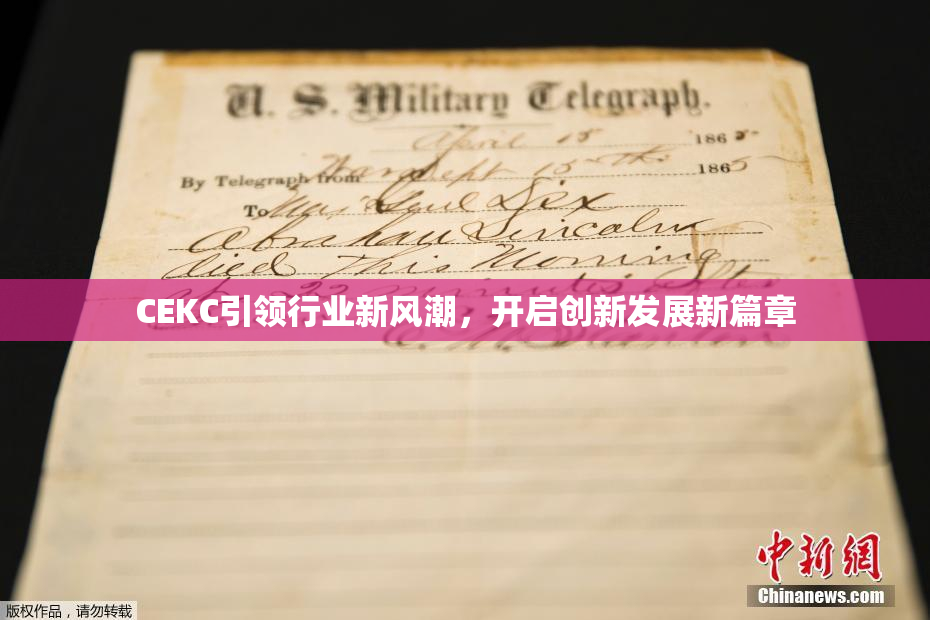 U. S. Military Telegraph.
April 15 1865
By Telegraph from War Dept 15th 1865
To Maj Genl Dix
Abraham Lincoln
died This Morning
at 22 minutes after
CEKC引领行业新风潮，开启创新发展新篇章
中新网
Chinanews.com
版权作品，请勿转载